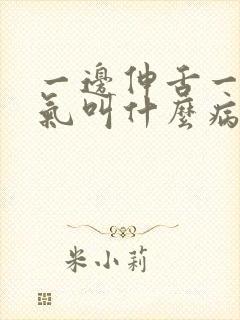 一邊伸舌一
氣叫什麼病
米小莉